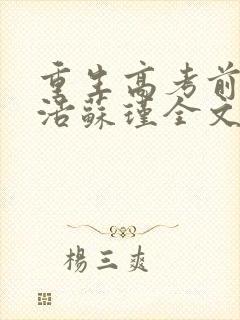 重生高考前
活蘇瑾全文
楊三爽